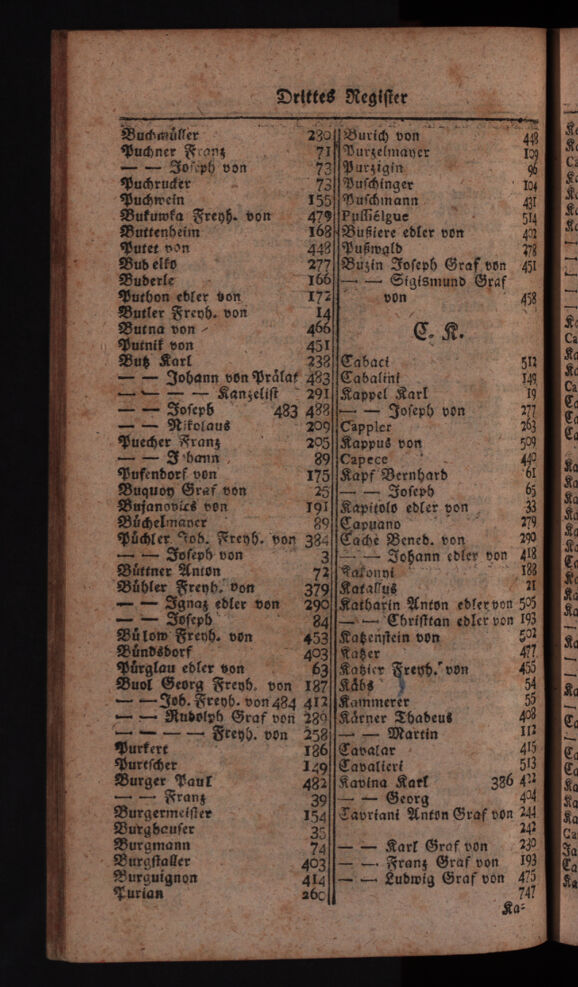 Drittes Register
Buchmüller 230
Puchner Franz 71
— — Joseph von 73
Puchrucker 73
Puchwein 155
Bukuwka Freyh. von 479
Buttenheim 168
Putet von 448
Bubelko 277
Buderle 166
Puthon edler von 172
Butler Freyh. von 14
Butna von 466
Putnik von 451
Butz Karl 238
— — Johann von Prälat 483
— — — Kanzelist 291
— — Joseph 483 488
— — Nikolaus 209
Puecher Franz 205
— — Johann 89
Pufendorf von 175
Buquoy Graf von 25
Bujanovics von 191
Büchelmayer 89
Püchler Joh. Freyh. von 384
— — Joseph von 3
Büttner Anton 72
Bühler Freyh. von 379
— — Ignaz edler von 290
— — Joseph 84
Bülow Freyh. von 453
Bündsdorf 403
Pürglau edler von 63
Buol Georg Freyh. von 187
— — Joh. Freyh. von 484 412
— — Rudolph Graf von 289
— — — Freyh. von 258
Purkert 186
Purtscher 149
Burger Paul 482
— — Franz 39
Burgermeister 154
Burghauser 35
Burgmann 74
Burgstaller 403
Burguignon 414
Purian 260
Burich von 448
Purzelmayer 109
Purzigin 96
Puschinger 104
Puschmann 431
Pussiélgue 514
Bußiere edler von 402
Pußwald 278
Buzin Joseph Graf von 451
— — Sigismund Graf
von 458
C. K.
Cabaci 512
Cabalini 149
Kappel Karl 19
— — Joseph von 277
Cappler 263
Kappus von 509
Capece 440
Kapf Bernhard 61
— — Joseph 65
Kapitolo edler von 33
Capuano 279
Caché Bened. von 290
— — Johann edler von 418
Kakonyi 188
Katallus 21
Katharin Anton edler von 505
— — Christian edler von 193
Katzenstein von 502
Katzer 477
Katzier Freyh. von 455
Käbs 54
Kammerer 55
Kärner Thadeus 408
— — Martin 112
Cavalar 415
Cavalieri 513
Kavina Karl 386 422
— — Georg 404
Cavriani Anton Graf von 244
242
— — Karl Graf von 230
— — Franz Graf von 193
— — Ludwig Graf von 475
747
Ka-